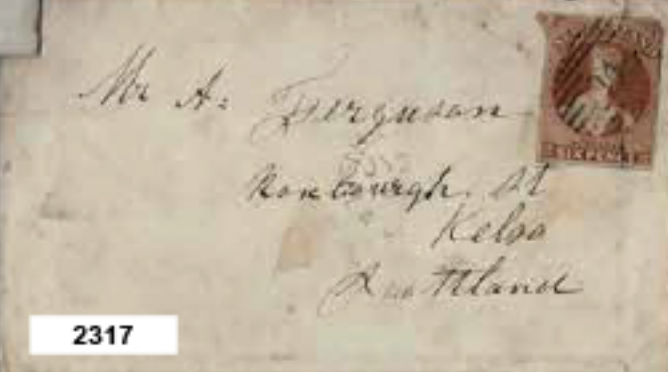 Mr A: Ferguson
Roxbourgh. St
Kelso
Scottland
SIXPENCE
2317